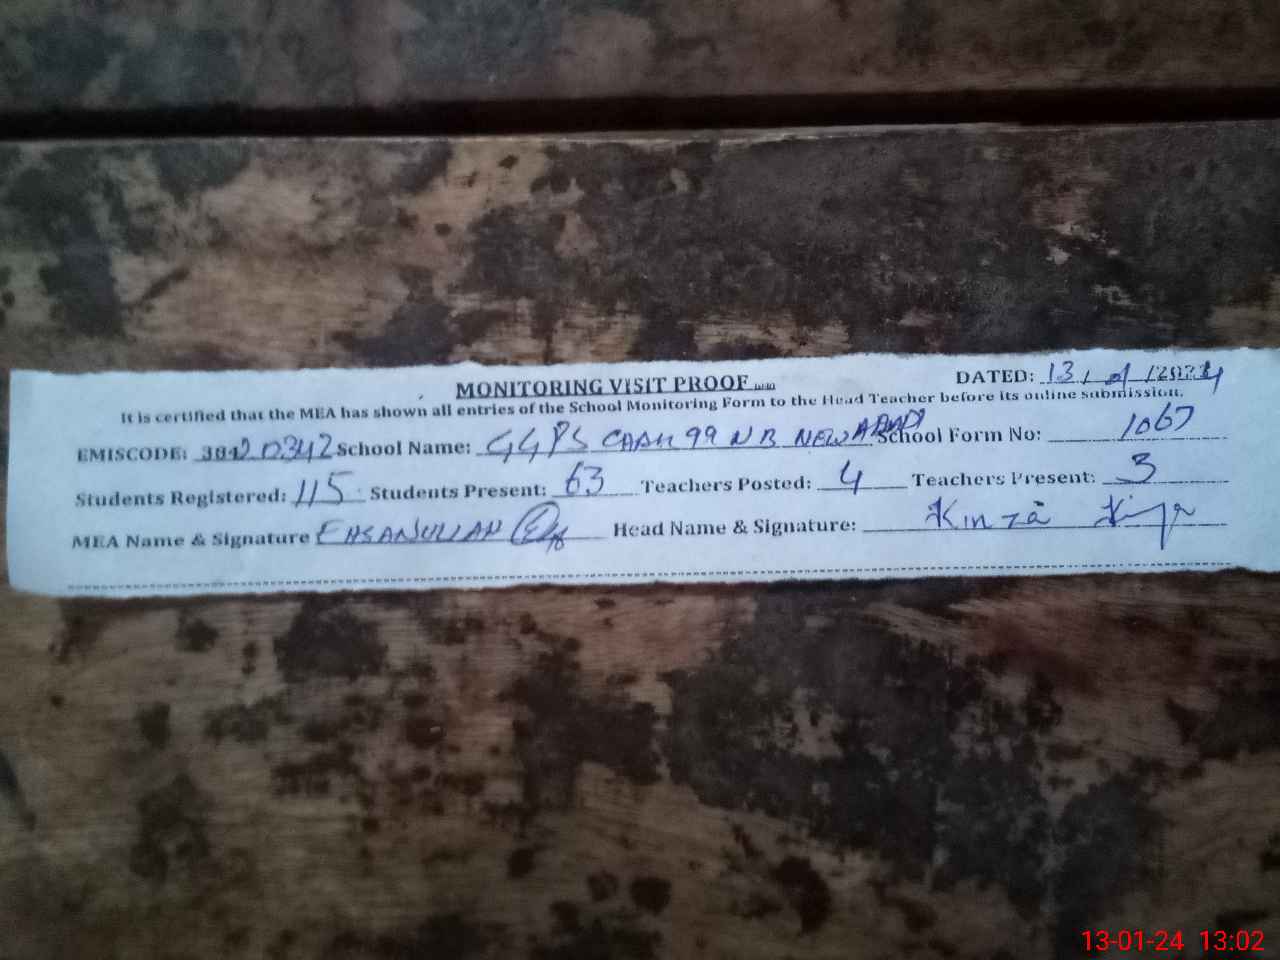 MONITORING VISIT PROOF
DATED: 13/01/2024
It is certified that the MEA has shown all entries of the School Monitoring Form to the Head Teacher before its online submission.
EMISCODE: 38420342 School Name: GGPS CHAK 99 NB NEW ABADI School Form No: 1067
Students Registered: 115 Students Present: 63 Teachers Posted: 4 Teachers Present: 3
MEA Name & Signature EHSANULLAH Head Name & Signature: Kinza
13-01-24 13:02